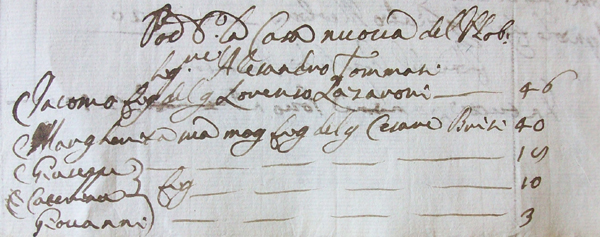 Pod. d.º la Casa nuova del Nob.
Sig.re Alesandro Tommasi
Jacomo fig del q Lorenzo Lazaroni 46
Margherita ma mog fig del q Cesare Brisi 40
Giuseppe 15
Caterina fig 10
Giovanni 3